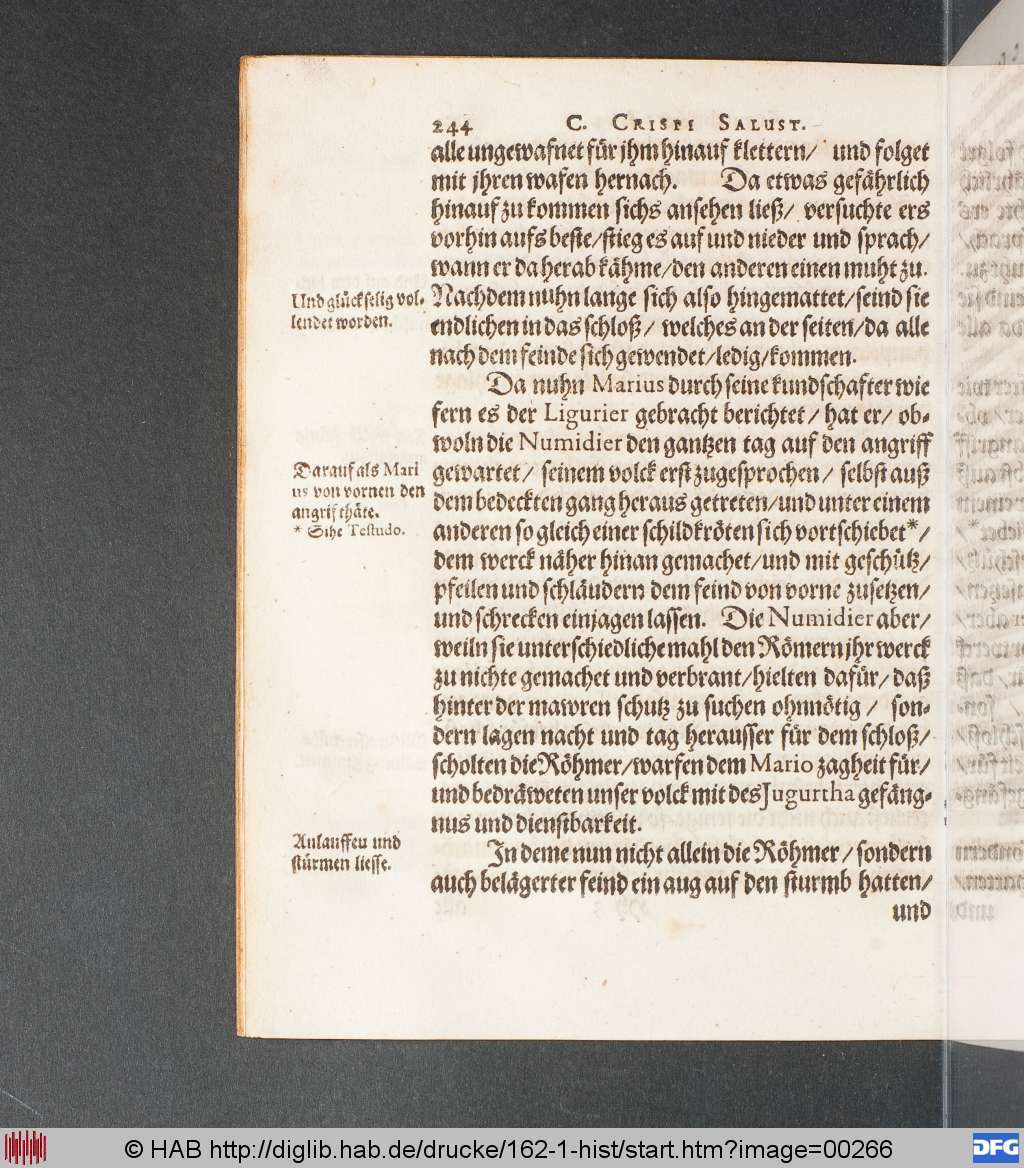 244 C. CRISPI SALUST.
alle ungewafnet für jhm hinauf klettern/ und folget
mit jhren wafen hernach. Da etwas gefährlich
hinauf zu kommen sichs ansehen ließ/ versuchte ers
vorhin aufs beste/stieg es auf und nieder und sprach/
wann er da herab kähme/den anderen einen muht zu.
Und glückselig vol-
lendet worden.
Nachdem nuhn lange sich also hingemattet/seind sie
endlichen in das schloß/ welches an der seiten/da alle
nach dem feinde sich gewendet/ledig/kommen.
Da nuhn Marius durch seine kundschafter wie
fern es der Ligurier gebracht berichtet/ hat er/ ob-
woln die Numidier den gantzen tag auf den angriff
Darauf als Mari
us von vornen den
angrif thäte.
* Sihe Testudo.
gewartet/ seinem volck erst zugesprochen/ selbst auß
dem bedeckten gang heraus getreten/und unter einem
anderen so gleich einer schildkröten sich vortschiebet*/
dem werck näher hinan gemachet/und mit geschütz/
pfeilen und schläudern dem feind von vorne zusetzen/
und schrecken einjagen lassen. Die Numidier aber/
weiln sie unterschiedliche mahl den Römern jhr werck
zu nichte gemachet und verbrant/hielten dafür/ daß
hinter der mawren schutz zu suchen ohnnötig/ son-
dern lagen nacht und tag herausser für dem schloß/
scholten die Röhmer/warfen dem Mario zagheit für/
und bedräweten unser volck mit des Jugurtha gefäng-
nus und dienstbarkeit.
Anlauffen und
stürmen liesse.
In deme nun nicht allein die Röhmer/ sondern
auch belägerter feind ein aug auf den sturmb hatten/
und
© HAB http://diglib.hab.de/drucke/162-1-hist/start.htm?image=00266
DFG